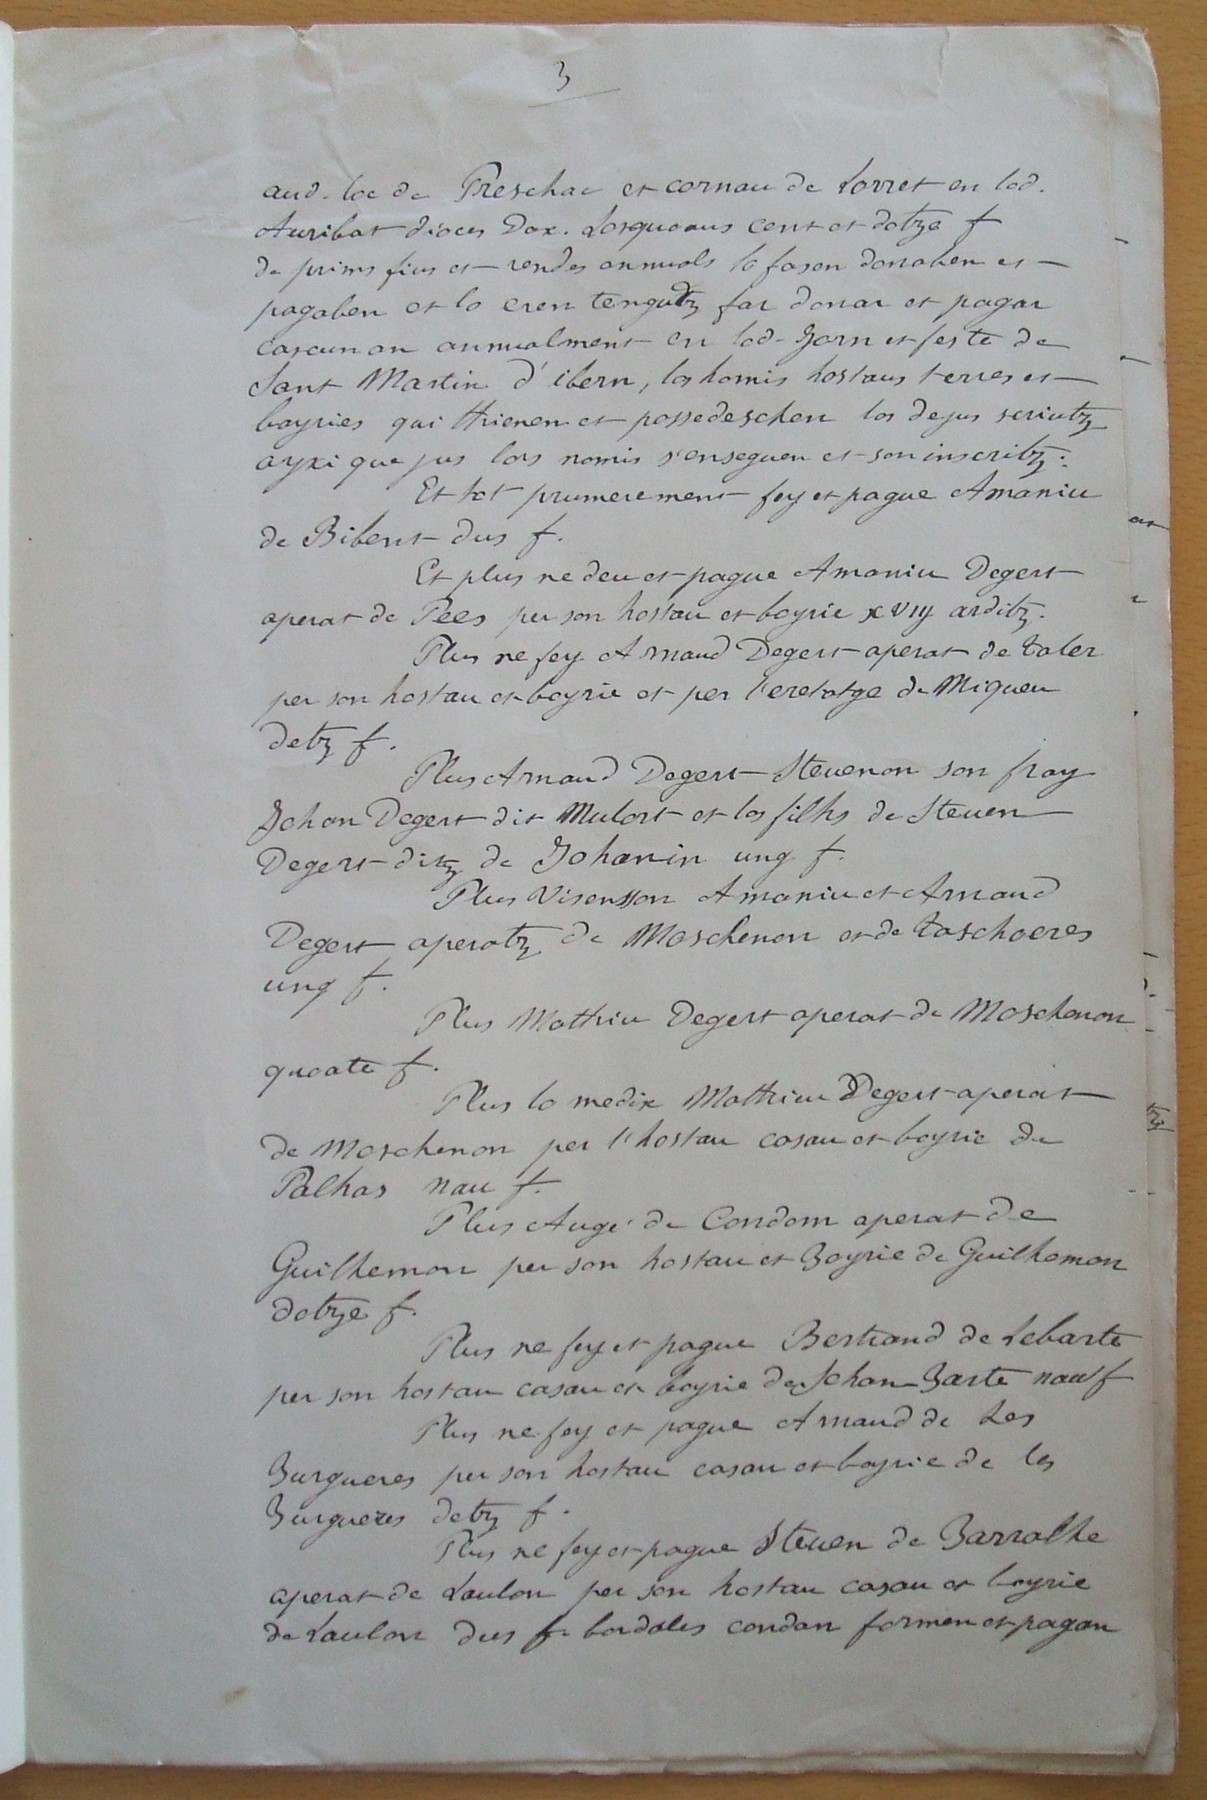 3
aud. loc de Preschac et cornau de Lorret en lod.
Auribat dioces Dax. Losquoaus cent et dotze f
de prims fius et rendes annuals lo fasen donaben et
pagaben et lo eren tengutz far donar et pagar
cascun an annualment en lod. Jorn et feste de
Sant Martin d'ibern, los homis hostaus terres et
boyries qui thienen et possedeschen los dejus scriutz
ayxi que jus lors nomis s'enseguen et son inscritz:
Et tot prumerement fey et pague Amaniu
de Bibent dus f.
Et plus ne deu et pague Amaniu Degert
aperat de Pees per son hostau et boyrie xviij arditz.
Plus ne fey Arnaud Degert aperat de Taler
per son hostau et boyrie et per l'eretatge de Miqueu
detz f.
Plus Arnaud Degert Steuenon son fray
Johan Degert dit Mulort et los filhs de Steuen
Degert ditz de Johanin ung f.
Plus Visensson Amaniu et Arnaud
Degert aperatz de Moschenon et de Taschoeres
ung f.
Plus Mathiu Degert aperat de Moschenon
quoate f.
Plus lo medix Mathiu Degert aperat
de Moschenon per l'hostau casau et boyrie de
Palhas nau f.
Plus Augé de Condom aperat de
Guilhemon per son hostau et Boyrie de Guilhemon
dotze f.
Plus ne fey et pague Bertrand de Lebarte
per son hostau casau et boyrie de Johan Barte nau f
Plus ne fey et pague Arnaud de Les
Burgueres per son hostau casau et boyrie de les
Burgueres detz f.
Plus ne fey et pague Steuen de Barralhe
aperat de Laulon per son hostau casau et boyrie
de Laulon dus f. bordales condan formen et pagan